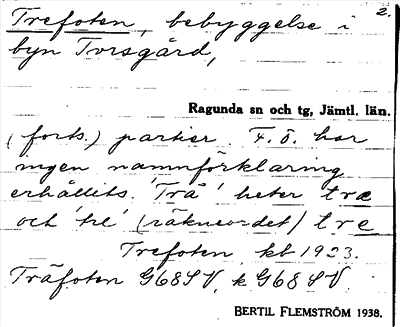 2.
Trefoten, bebyggelse i
byn Torsgård,
Ragunda sn och tg, Jämtl. län.
(forts.) partier. F. ö. har
ingen namnförklaring
erhållits. 'Trä' heter træ
och 'tre' (räkneordet) tre
Trefoten kb 1923.
Träfoten G68SV, k G68SV
BERTIL FLEMSTRÖM 1938.